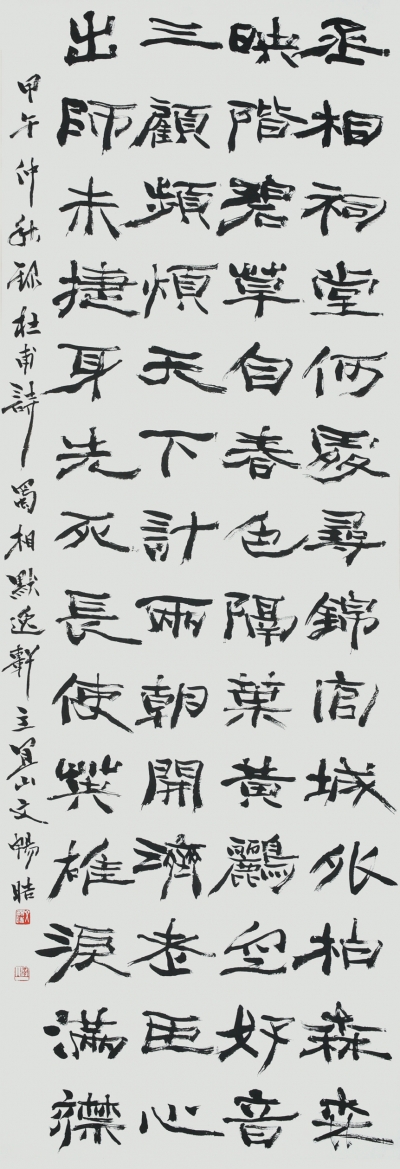 丞相祠堂何處尋錦官城外柏森森
映階碧草自春色隔葉黃鸝空好音
三顧頻煩天下計兩朝開濟老臣心
出師未捷身先死長使英雄淚滿襟
甲午仲秋錄杜甫詩蜀相默逸軒主宜山文暢皓